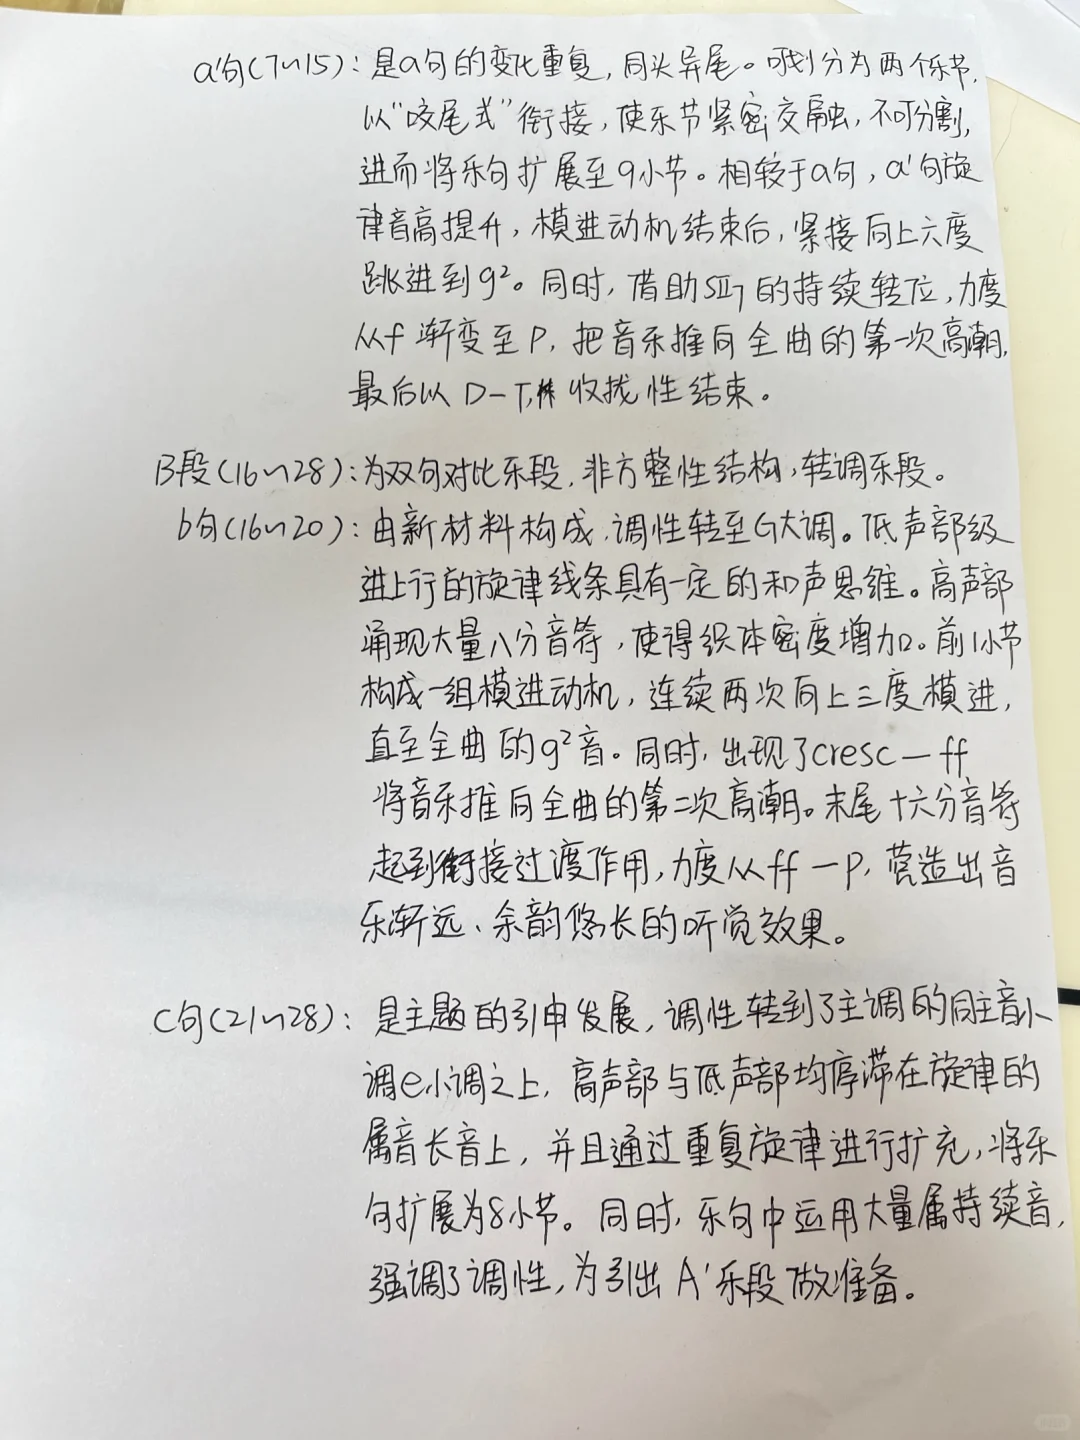 a'句(7~15): 是a句的变化重复,同头异尾。可划分为两个乐节,
以"咬尾式"衔接,使乐节紧密交融,不可分割,
进而将乐句扩展至9小节。相较于a句,a'句旋
律音高提升,模进动机结束后,紧接向上六度
跳进到g²。同时,借助SII7的持续转位,力度
从f渐变至P,把音乐推向全曲的第一次高潮,
最后以D—T,收拢性结束。
B段(16~28):为双句对比乐段,非方整性结构,转调乐段。
b句(16~20): 由新材料构成,调性转至G大调。低声部级
进上行的旋律线条具有一定的和声思维。高声部
涌现大量八分音符,使得织体密度增加。前1小节
构成一组模进动机,连续两次向上三度模进,
直至全曲的g²音。同时,出现了cresc—ff
将音乐推向全曲的第二次高潮。末尾十六分音符
起到衔接过渡作用,力度从ff—P,营造出音
乐渐远、余韵悠长的听觉效果。
C句(21~28): 是主题的引申发展,调性转到了主调的同主音小
调e小调之上,高声部与低声部均停滞在旋律的
属音长音上,并且通过重复旋律进行扩充,将乐
句扩展为8小节。同时,乐句中运用大量属持续音,
强调了调性,为引出A'乐段做准备。